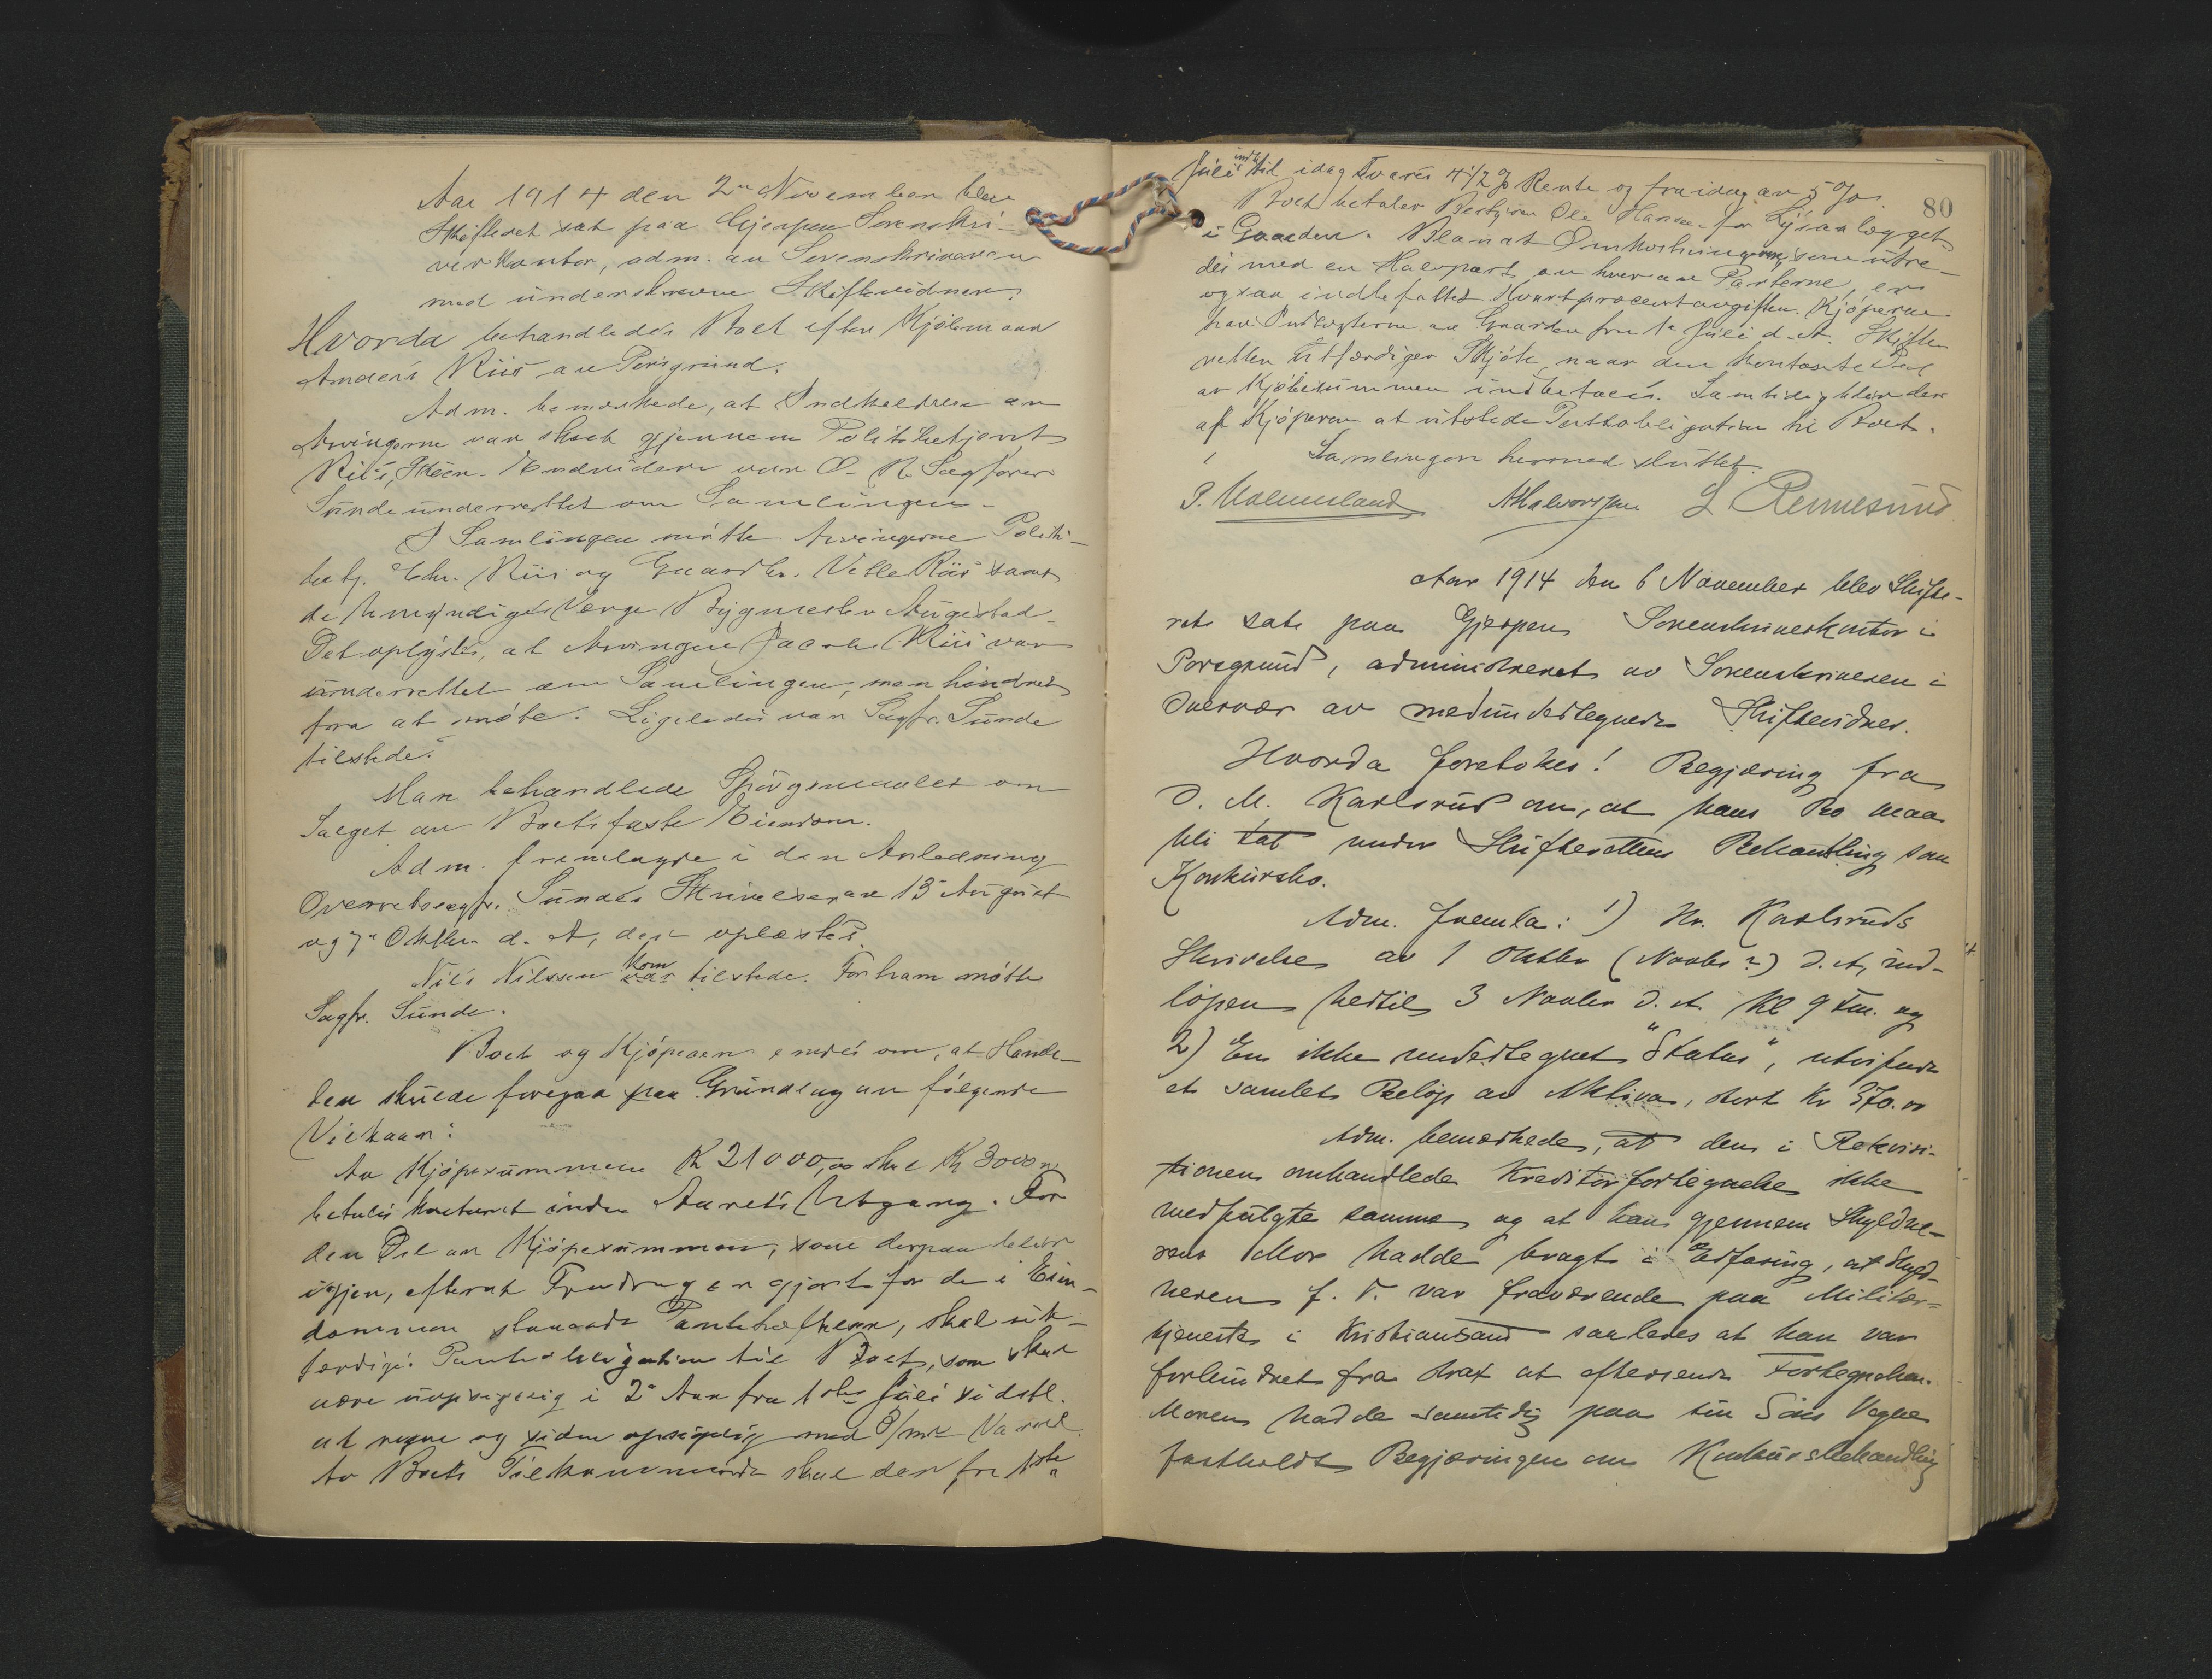 Aar 1914 den 2den November blev
Skifteret sat paa Gjerpen Sorenskri-
verkontor, adm. av Sorenskriveren
med underskrevne Skiftevidner.
Hvorda behandledes Boet efter Kjøbmand
Anders Riis av Porsgrund.
Adm. bemærkede, at Indkaldelse av
Arvingerne var skeet gjennem Politibetjent
Riis, Skien. Endvidere var O. R. Sagfører
Sunde underrettet om Samlingen.
I Samlingen møtte Arvingerne Politi-
betj. Chr. Riis og Gaardbr. Vetle Riis samt
de Umyndiges Verge Bygmester Augestad.
Det oplystes, at Arvingen Jacob Riis var
underrettet om Samlingen, men hindret
fra at møte. Ligeledes var Sagfr. Sunde
tilstede.
Man behandlede Spørgsmaalet om
Salget av Boets faste Eiendom.
Adm. fremlagde i den Anledning
Overretssagfr. Sundes Skrivelser av 13 August
og 7de Oktbr. d. A, der oplæstes.
Nils Nilssen kom tilstede. For ham møtte
Sagfr. Sunde.
Boet og Kjøperen enedes om, at Hande-
len skulde foregaa paa Grundlag av følgende
Vilkaar:
Av Kjøpesummen K 21000,00 skal K 3000,00
betales kontant inden Aarets Utgang. For
den Del av Kjøpesummen, som derpaa bliver
igjen, efterat Fradrag er gjort for de i Eien-
dommen staaende Pantehæftelser, skal ut-
færdiges Panteobligation til Boet, som skal
være uopsigelig i 2 Aar fra 1ste Juli sidstl.
at regne og siden opsigelig med 3/mdr Varsel.
Av Boets Tilkommende skal der fra 1ste
80
Juli indtil idag svares 4 1/2 % Rente og fra idag av 5 %.
Boet betaler Bestyrer Ole Hansen for Lysanlægget
i Gaarden. Blandt Omkostningerne, som utre-
des med en Halvpart av hver av Parterne, er
ogsaa indbefattet Kvartprocentavgiften. Kjøperen
har Indtægterne av Gaarden fra 1ste Juli d. A. Skifte-
retten utfærdiger Skjøte, naar den kontante Del
av Kjøbesummen indbetales. Samtidig bliver der
af Kjøperen at utstede Panteobligation til Boet.
Samlingen hermed sluttet.
AHalvorsen L Rennesund
Aar 1914 den 6 November blev Skifte-
ret sat paa Gjerpens Sorenskriverkontor i
Porsgrund, administreret av Sorenskriveren i
Overvær av medundertegnede Skiftevidner.
Hvorda foretokes: Begjæring fra
O. M. Karlsrud om, at hans Bo maa
bli tat under Skifterettens Behandling som
Konkursbo.
Adm. fremla: 1) Hr. Karlsruds
Skrivelse av 1 Oktbr (Novbr?) d. A., ind-
løpen hertil 3 Novbr d. A. Kl 9 Fm. og
2) En ikke undertegnet "Status", utvisende
et samlet Beløp av Aktiva, stort Kr 370.00
Adm. bemærkede, at den i Rekvisi-
tionen omhandlede Kreditorfortegnelse ikke
medfulgte samme og at han gjennem Skyldne-
rens Mor hadde bragt i Erfaring, at Skyld-
neren f. T. var fraværende paa Militær-
tjeneste i Kristiansand saaledes at han var
forhindret fra strax at eftersende Fortegnelsen.
Moren hadde samtidig paa sin Søns Vegne
fastholdt Begjæringen om Konkursbehandling